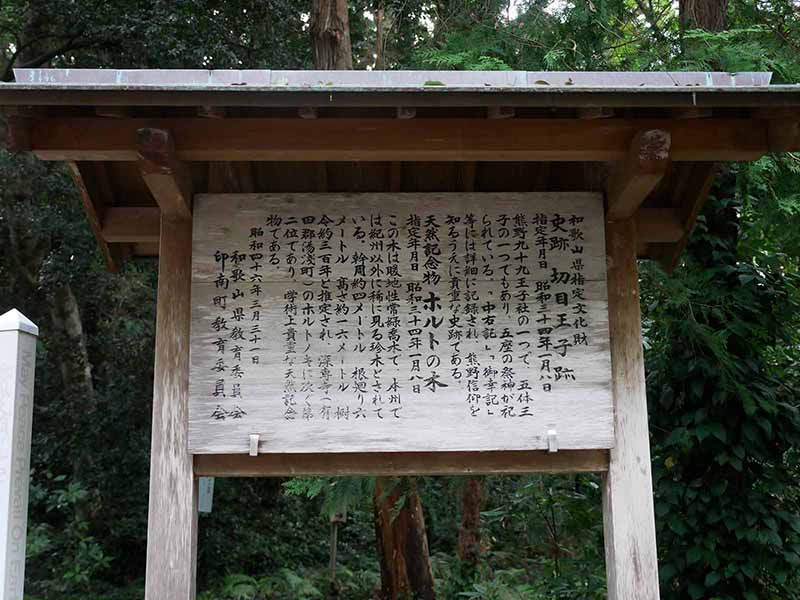 和歌山県指定文化財
史跡 切目王子跡
指定年月日 昭和三十四年一月八日
熊野九十九王子社の一つで、五体王
子の一つでもあり、五座の祭神が祀
られている。「中右記」、「御幸記」
等には詳細に記録され、熊野信仰を
知るうえに貴重な史跡である。
天然記念物 ホルトの木
指定年月日 昭和三十四年一月八日
この木は暖地性常緑喬木で、本州で
は紀州以外に稀に見る珍木とされて
いる。幹周約四メートル 根廻り六
メートル 高さ約一六メートル 樹
令約三百年と推定され、深専寺(有
田郡湯浅町)のホルトノキに次ぐ第
二位であり、学術上貴重な天然記念
物である。
昭和四十六年三月三十一日
和歌山県教育委員会
印南町教育委員会
May Peace Prevail On Earth